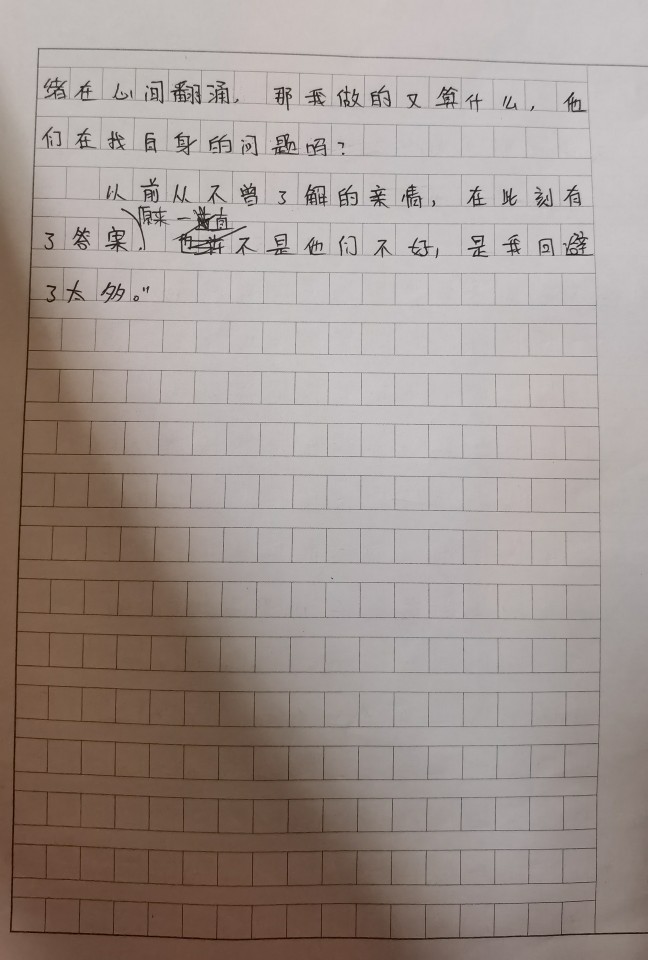 绪在心间翻涌，那我做的又算什么，他
们在找自身的问题吗？
以前从不曾了解的亲情，在此刻有
原来一直
了答案，不是他们不好，是我回避
了太多。”